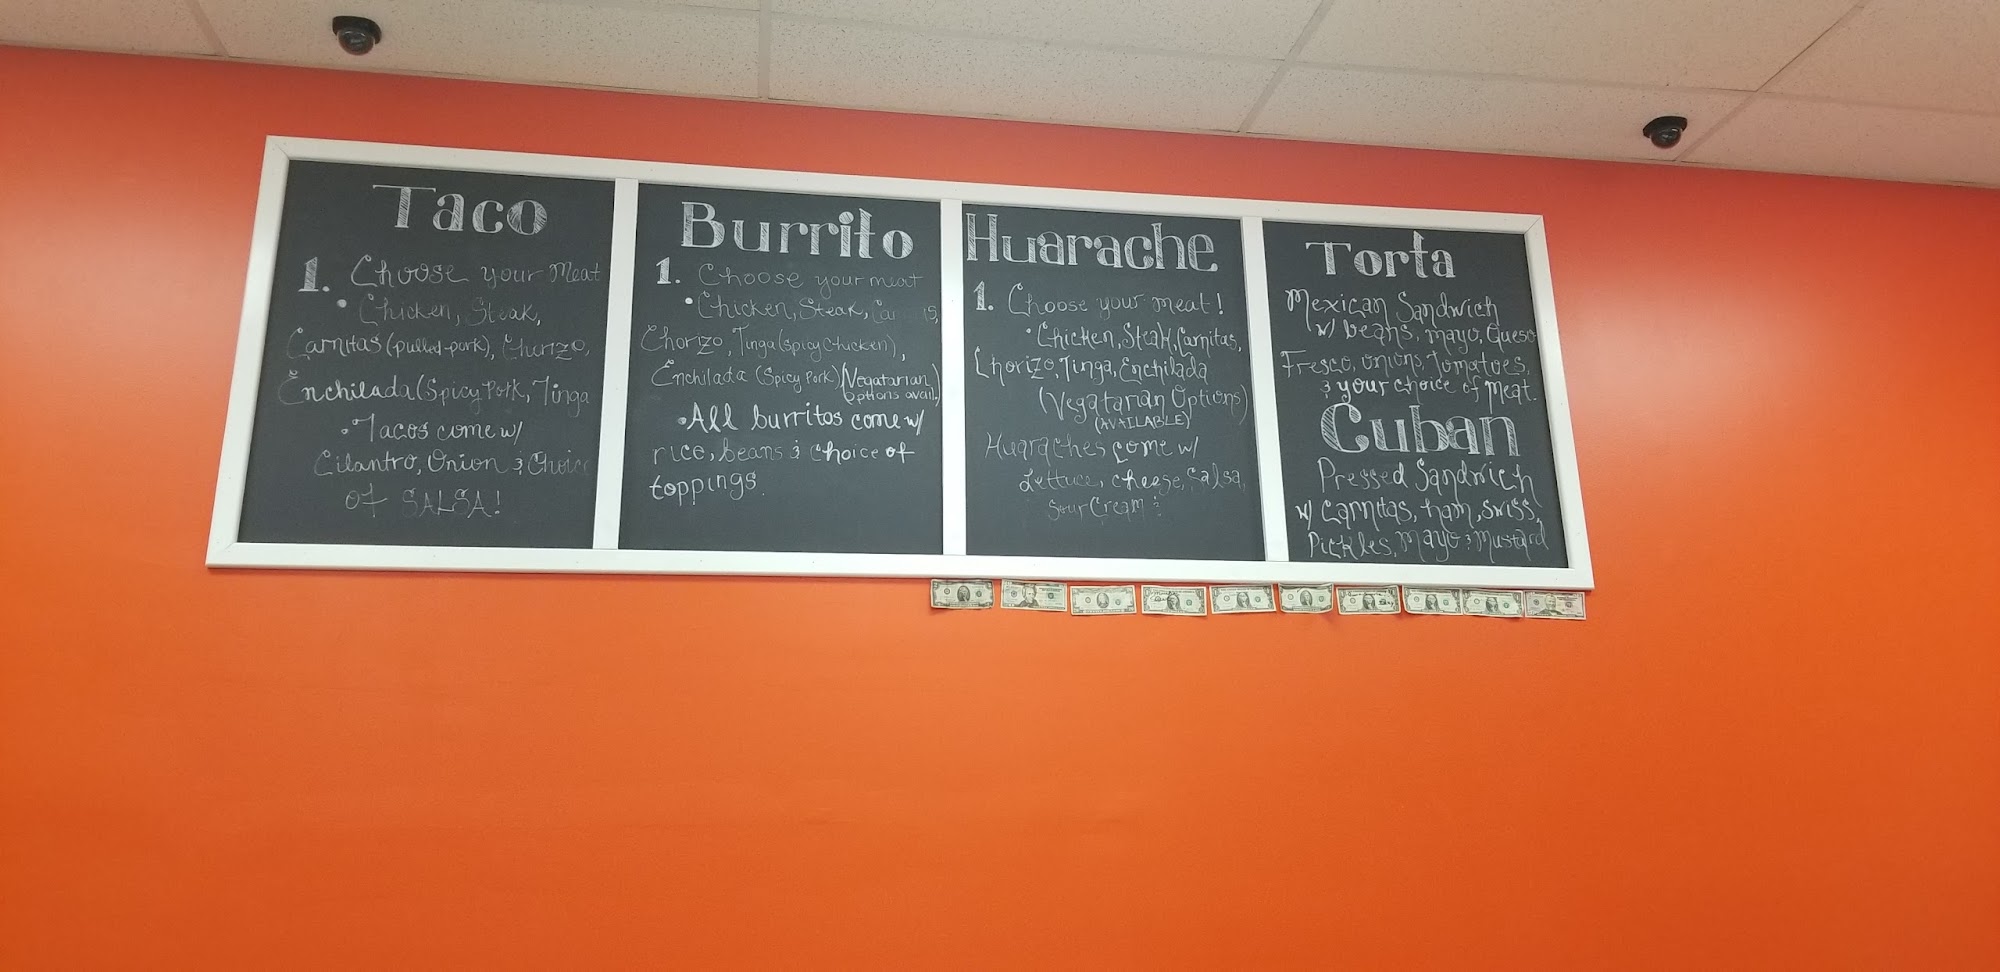 Taco
1. Choose your Meat
• Chicken, Steak,
Carnitas (pulled-pork), Chorizo,
Enchilada (Spicy Pork, Tinga
• Tacos come w/
Cilantro, Onion & Choice
of SALSA!
Burrito
1. Choose your meat
• Chicken, Steak,
Chorizo, Tinga (spicy chicken),
Enchilada (Spicy Pork) (Vegatarian
options avail.)
• All burritos come w/
rice, beans & choice of
toppings.
Huarache
1. Choose your meat!
• Chicken, Steak, Carnitas,
Chorizo, Tinga, Enchilada
(Vegatarian Options)
(AVAILABLE)
Huaraches come w/
Lettuce, cheese, Salsa,
Sour Cream &
Torta
Mexican Sandwich
w/ beans, mayo, Queso
Fresco, onions, Tomatoes,
& your choice of meat.
Cuban
Pressed Sandwich
w/ Carnitas, ham, swiss,
Pickles, Mayo & Mustard